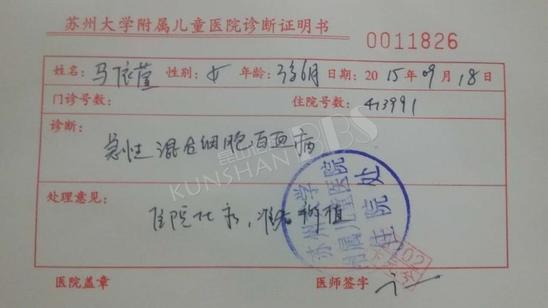 苏州大学附属儿童医院诊断证明书
0011826
姓名：马依萱 性别：女 年龄：3岁6月 日期：2015年09月18日
门诊号数： 住院号数：413991
诊断：
急性混合细胞白血病
KUNSHAN BBS
处理意见：
住院化疗，准备移植
苏州大学
附属儿童医院
住院处
医院盖章 医师签字